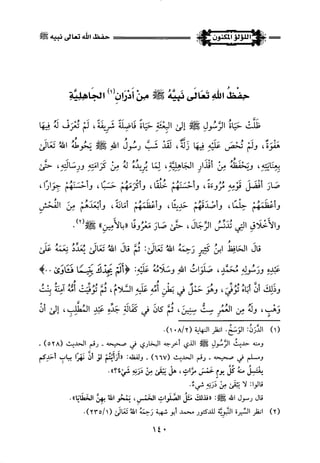 اللؤلؤ المكنون
حفظ الله تعالى نبيه ﷺ
حِفْظُ اللهِ تَعَالَى نَبِيَّهُ ﷺ مِنْ أَدْرَانِ(١) الجَاهِلِيَّةِ
ظَلَّتْ حَيَاةُ الرَّسُولِ ﷺ إِلَى البِعْثَةِ حَيَاةً فَاضِلَةً شَرِيفَةً، لَمْ تُعْرَفْ لَهُ فِيهَا
هَفْوَةٌ، وَلَمْ تُحْصَ عَلَيْهِ فِيهَا زَلَّةٌ، لَقَدْ شَبَّ رَسُولُ اللهِ ﷺ يَحُوطُهُ اللهُ تَعَالَى
بِعِنَايَتِهِ، وَيَحْفَظُهُ مِنْ أَقْذَارِ الجَاهِلِيَّةِ، لِمَا يُرِيدُهُ لَهُ مِنْ كَرَامَتِهِ وَرِسَالَتِهِ، حَتَّى
صَارَ أَفْضَلَ قَوْمِهِ مُرُوءَةً، وَأَحْسَنَهُمْ خُلُقًا، وَأَكْرَمَهُمْ حَسَبًا، وَأَحْسَنَهُمْ جِوَارًا،
وَأَعْظَمَهُمْ حِلْمًا، وَأَصْدَقَهُمْ حَدِيثًا، وَأَعْظَمَهُمْ أَمَانَةً، وَأَبْعَدَهُمْ مِنَ الفُحْشِ
وَالأَخْلَاقِ التِي تُدَنِّسُ الرِّجَالَ، حَتَّى صَارَ مَعْرُوفًا «بِالأَمِينِ» ﷺ(٢).
قَالَ الحَافِظُ ابنُ كَثِيرٍ رَحِمَهُ اللهُ تَعَالَى: ثُمَّ قَالَ اللهُ تَعَالَى يُعَدِّدُ نِعَمَهُ عَلَى
عَبْدِهِ وَرَسُولِهِ مُحَمَّدٍ، صَلَوَاتُ اللهِ وَسَلَامُهُ عَلَيْهِ: ﴿أَلَمْ يَجِدْكَ يَتِيمًا فَآوَى﴾
وَذَلِكَ أَنَّ أَبَاهُ تُوُفِّيَ، وَهُوَ حَمْلٌ فِي بَطْنِ أُمِّهِ عَلَيْهِ السَّلَامُ، ثُمَّ تُوُفِّيَتْ أُمُّهُ آمِنَةُ بِنْتُ
وَهْبٍ، وَلَهُ مِنَ العُمُرِ سِتُّ سِنِينَ، ثُمَّ كَانَ فِي كَفَالَةِ جَدِّهِ عَبْدِ المُطَّلِبِ، إِلَى أَنْ
(١) الدَّرَنُ: الوَسَخُ. انظر النهاية (١٠٨/٢).
ومنه حديث الرَّسُولِ ﷺ الذي أخرجه البخاري في صحيحه ـ رقم الحديث (٥٢٨) ـ
ومسلم في صحيحه ـ رقم الحديث (٦٦٧) ـ ولفظه: «أَرَأَيْتُمْ لَوْ أَنَّ نَهْرًا بِبَابِ أَحَدِكُمْ
يَغْتَسِلُ مِنْهُ كُلَّ يومٍ خَمْسَ مَرَّاتٍ، هَلْ يَبْقَى مِنْ دَرَنِهِ شَيْءٌ؟».
قالوا: لَا يَبْقَى مِنْ دَرَنِهِ شَيءٌ.
قال رسول الله ﷺ: «فَذَلِكَ مَثَلُ الصَّلَوَاتِ الخَمْسِ، يَمْحُو اللهُ بِهِنَّ الخَطَايَا».
(٢) انظر السِّيرة النَّبوِيَّة للدكتور محمد أبو شهبة رَحِمَهُ اللهُ تَعَالَى (٢٣٥/١).
١٤٠